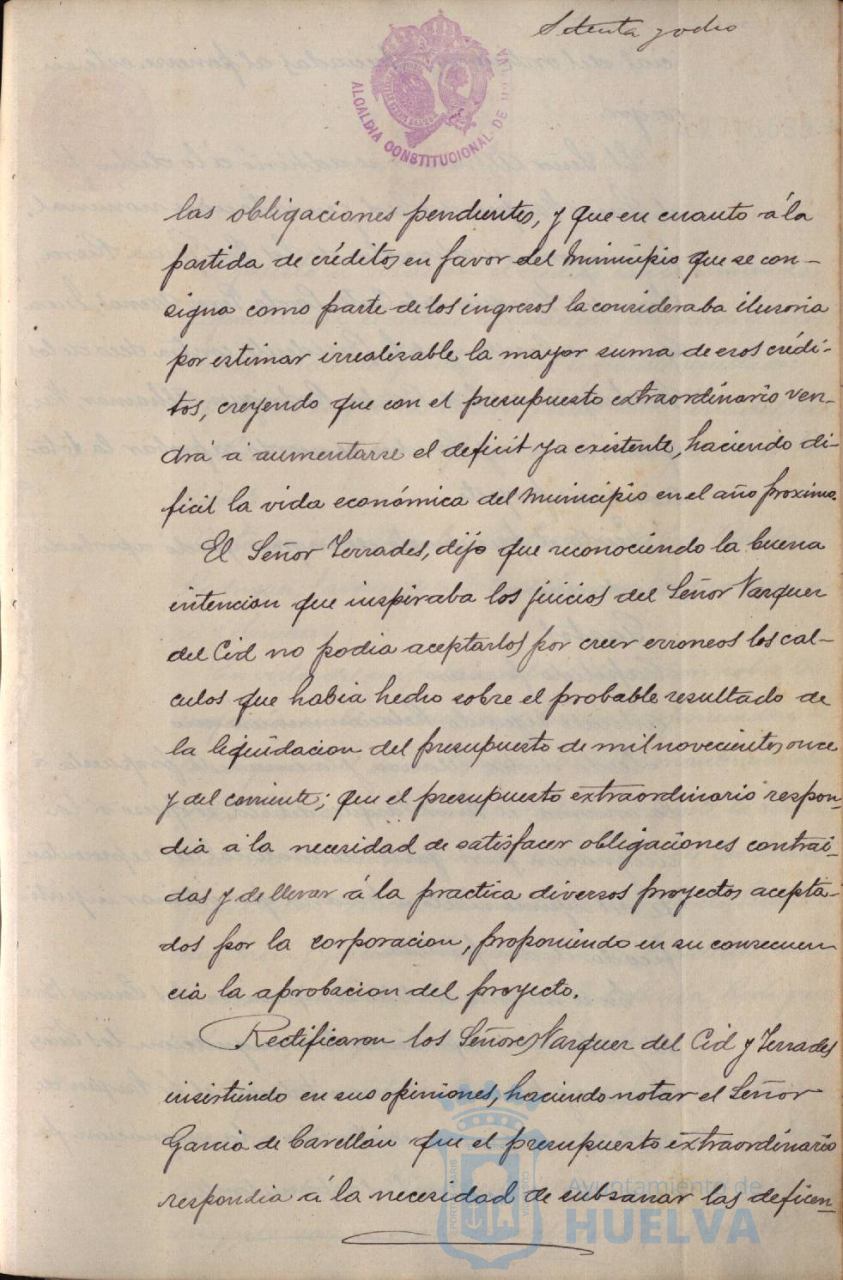 Setenta y ocho
ALCALDIA CONSTITUCIONAL DE HUELVA
las obligaciones pendientes, y que en cuanto á la
partida de créditos en favor del Municipio que se con-
signa como parte de los ingresos la consideraba ilusoria
por estimar irrealizable la mayor suma de esos crédi-
tos, creyendo que con el presupuesto extraordinario ven-
drá á aumentarse el deficit ya existente, haciendo di-
ficil la vida económica del Municipio en el año proximo.
El Señor Terrades, dijo que reconociendo la buena
intencion que inspiraba los juicios del Señor Vazquez
del Cid no podia aceptarlos por creer erroneos los cal-
culos que habia hecho sobre el probable resultado de
la liquidacion del presupuesto de mil novecientos once
y del corriente; que el presupuesto extraordinario respon-
dia á la necesidad de satisfacer obligaciones contrai-
das y de llevar á la practica diversos proyectos acepta-
dos por la corporacion, proponiendo en su consecuen-
cia la aprobacion del proyecto.
Rectificaron los Señores Vazquez del Cid y Terrades
insistiendo en sus opiniones, haciendo notar el Señor
Garcia de Cavellán que el presupuesto extraordinario
respondia á la necesidad de subsanar las deficen-
Ayuntamiento de
HUELVA